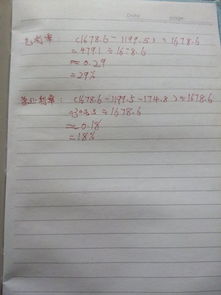 毛利率: (1678.6-1199.5)÷1678.6
=479.1÷1678.6
≈0.29
=29%
营业利率: (1678.6-1199.5-174.8)÷1678.6
÷1678.6
≈0.18
=18%